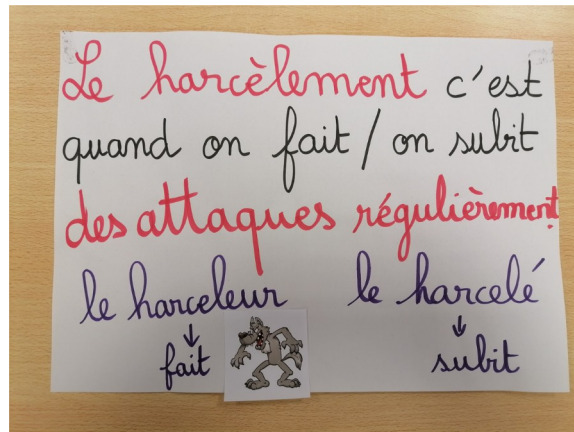 Le harcèlement c'est
quand on fait / on subit
des attaques régulièrement.
le harceleur le harcelé
↓ ↓
fait subit